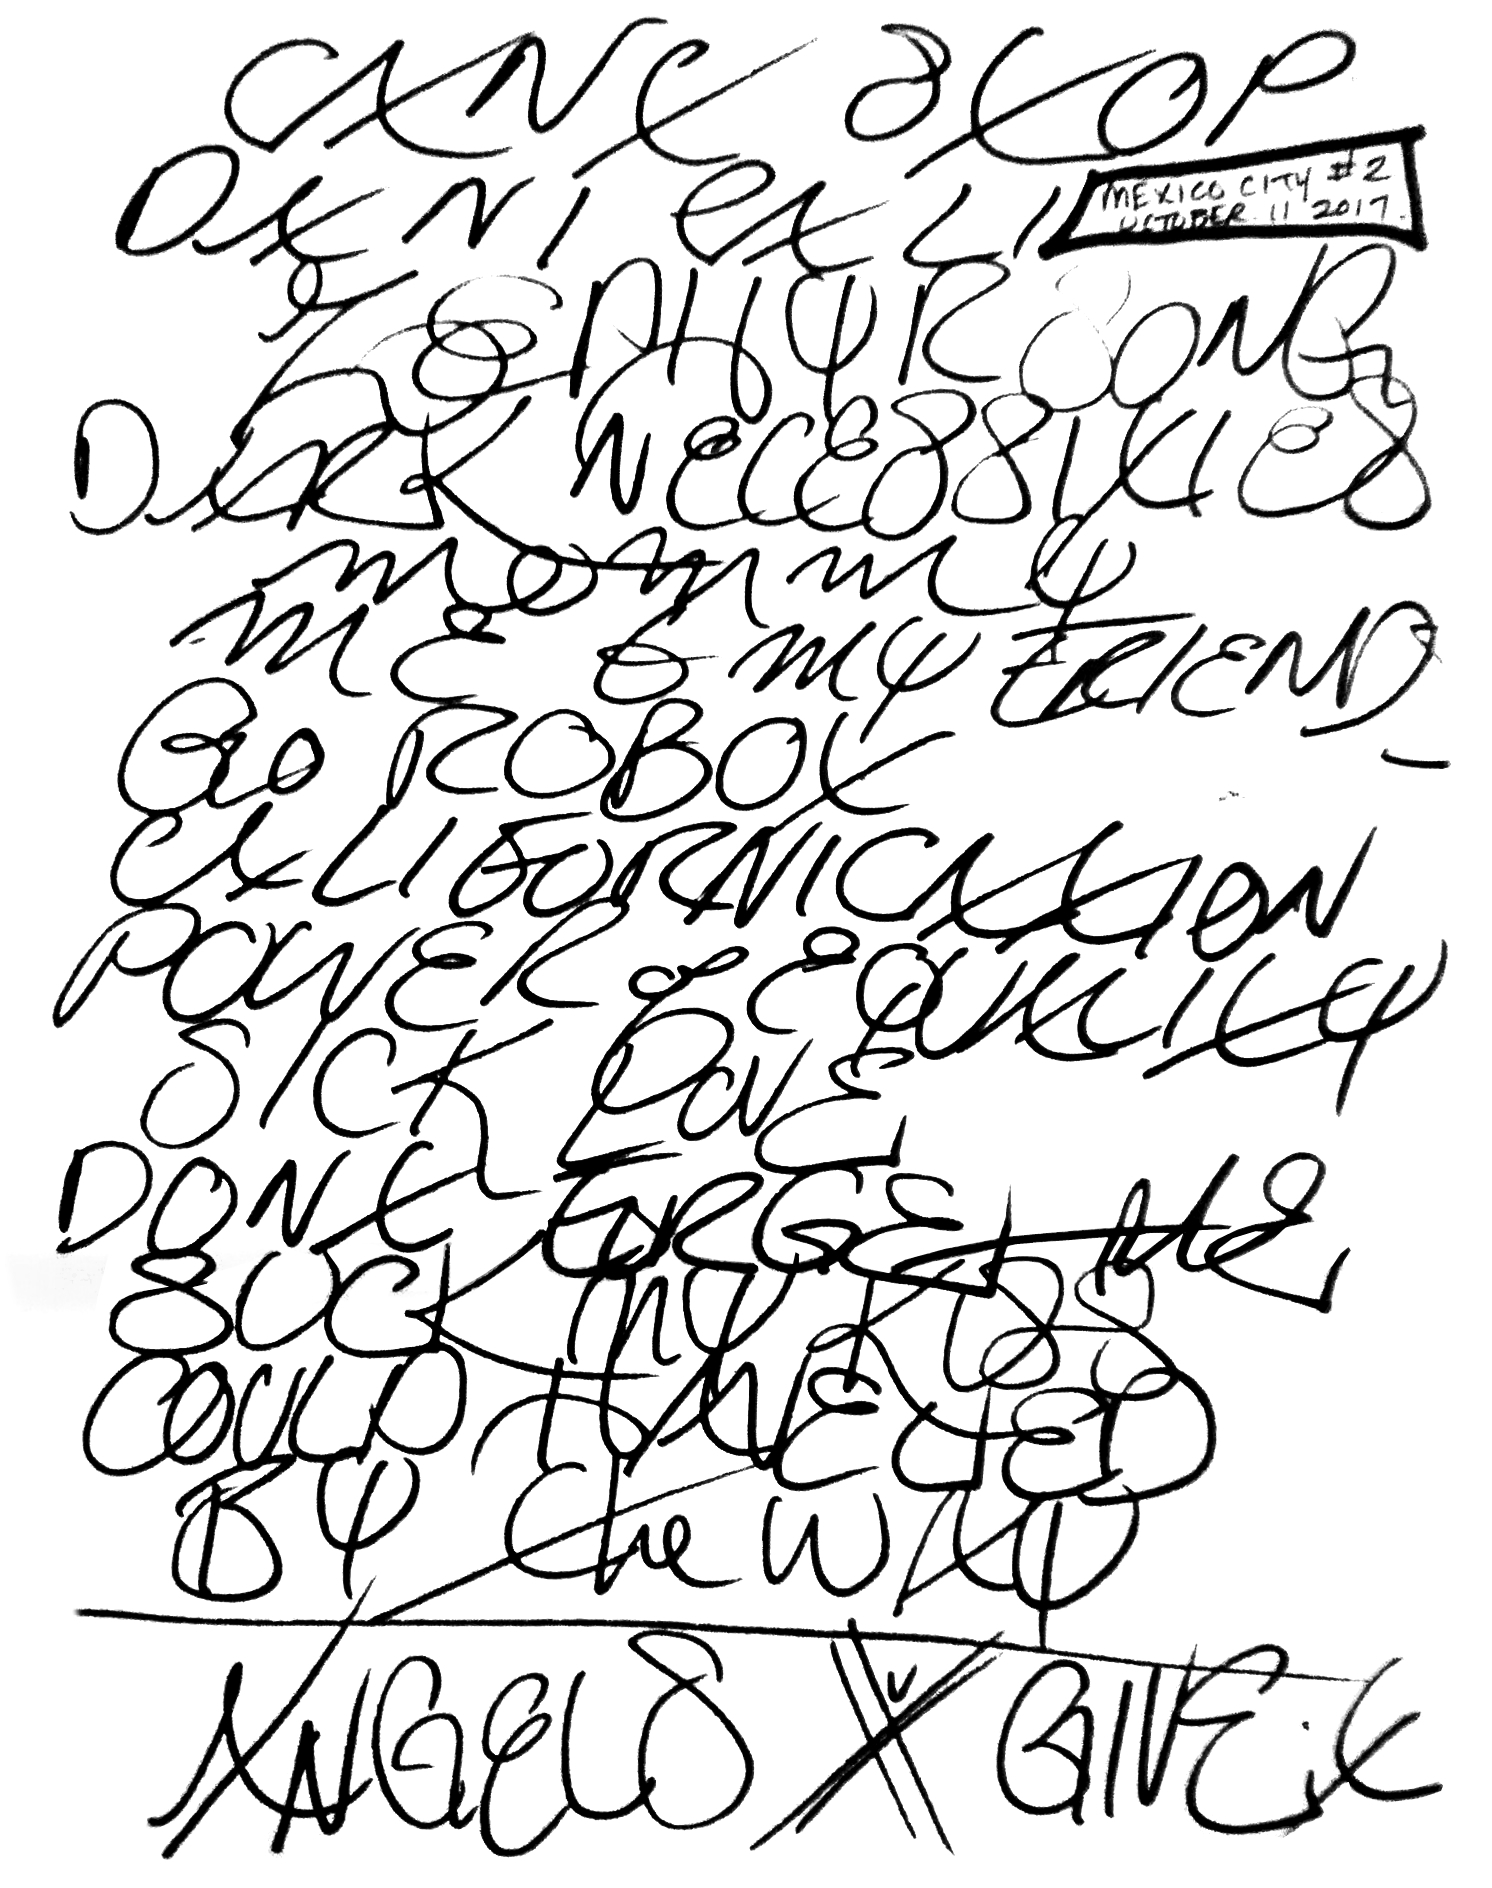 CAN'T STOP
DANI CALI
MEXICO CITY #2
OCTOBER 11 2017.
ZEPHYR SONG
DARK NECESSITIES
MOMMY
ME & MY FRIEND
GO ROBOT
CALIFORNICATION
POWER OF EQUALITY
SICK LOVE
DON'T FORGET ME
SUCK MY KISS
COULD HAVE LIED
BY THE WAY
ANGELS X GIVE.IT